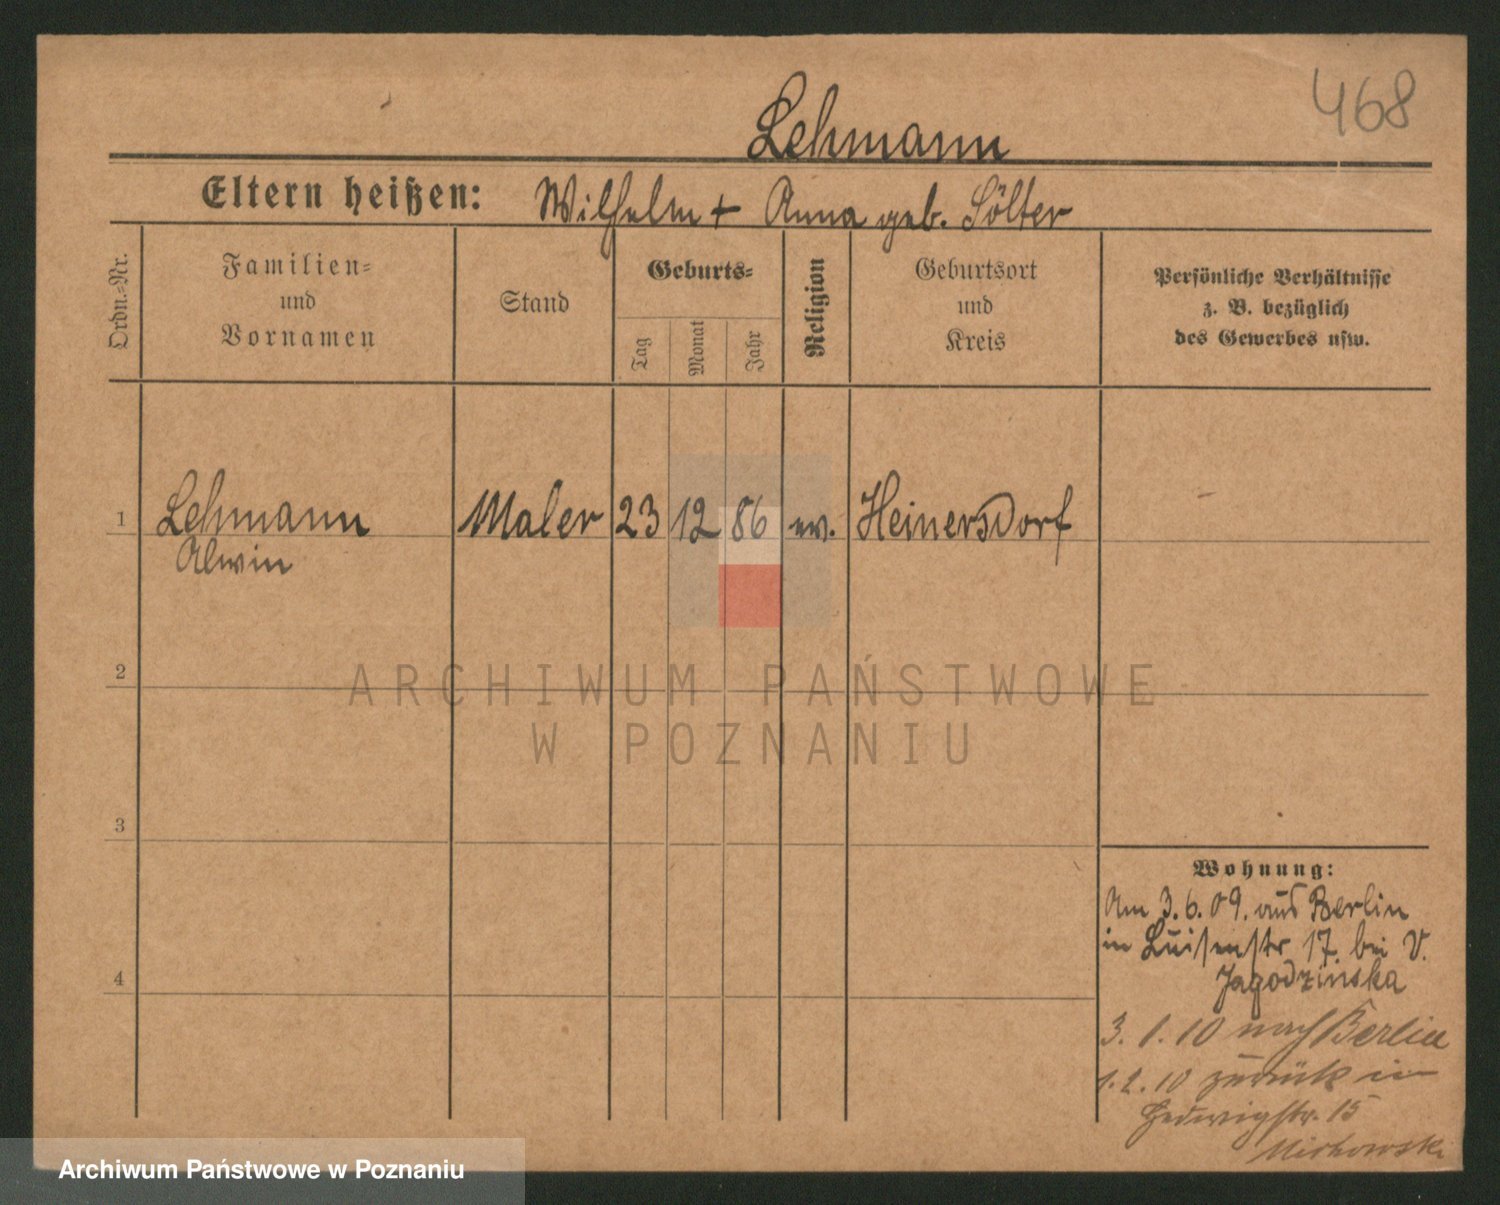 468
Lehmann
Eltern heißen: Wilhelm + Anna geb. Sölter
Ordn.-Nr.
Familien-
und
Vornamen
Stand
Geburts-
Tag
Monat
Jahr
Religion
Geburtsort
und
Kreis
Persönliche Verhältnisse
z. B. bezüglich
des Gewerbes usw.
1 Lehmann Maler 23 12 86 ev. Heinersdorf
Alwin
2
ARCHIWUM PAŃSTWOWE
W POZNANIU
3
Wohnung:
Am 3.6.09. aus Berlin
in Luisenstr 17. bei V.
Jagodzinska
4
3. 1. 10 nach Berlin
1.2.10 zurück in
Hedwigstr. 15
Archiwum Państwowe w Poznaniu